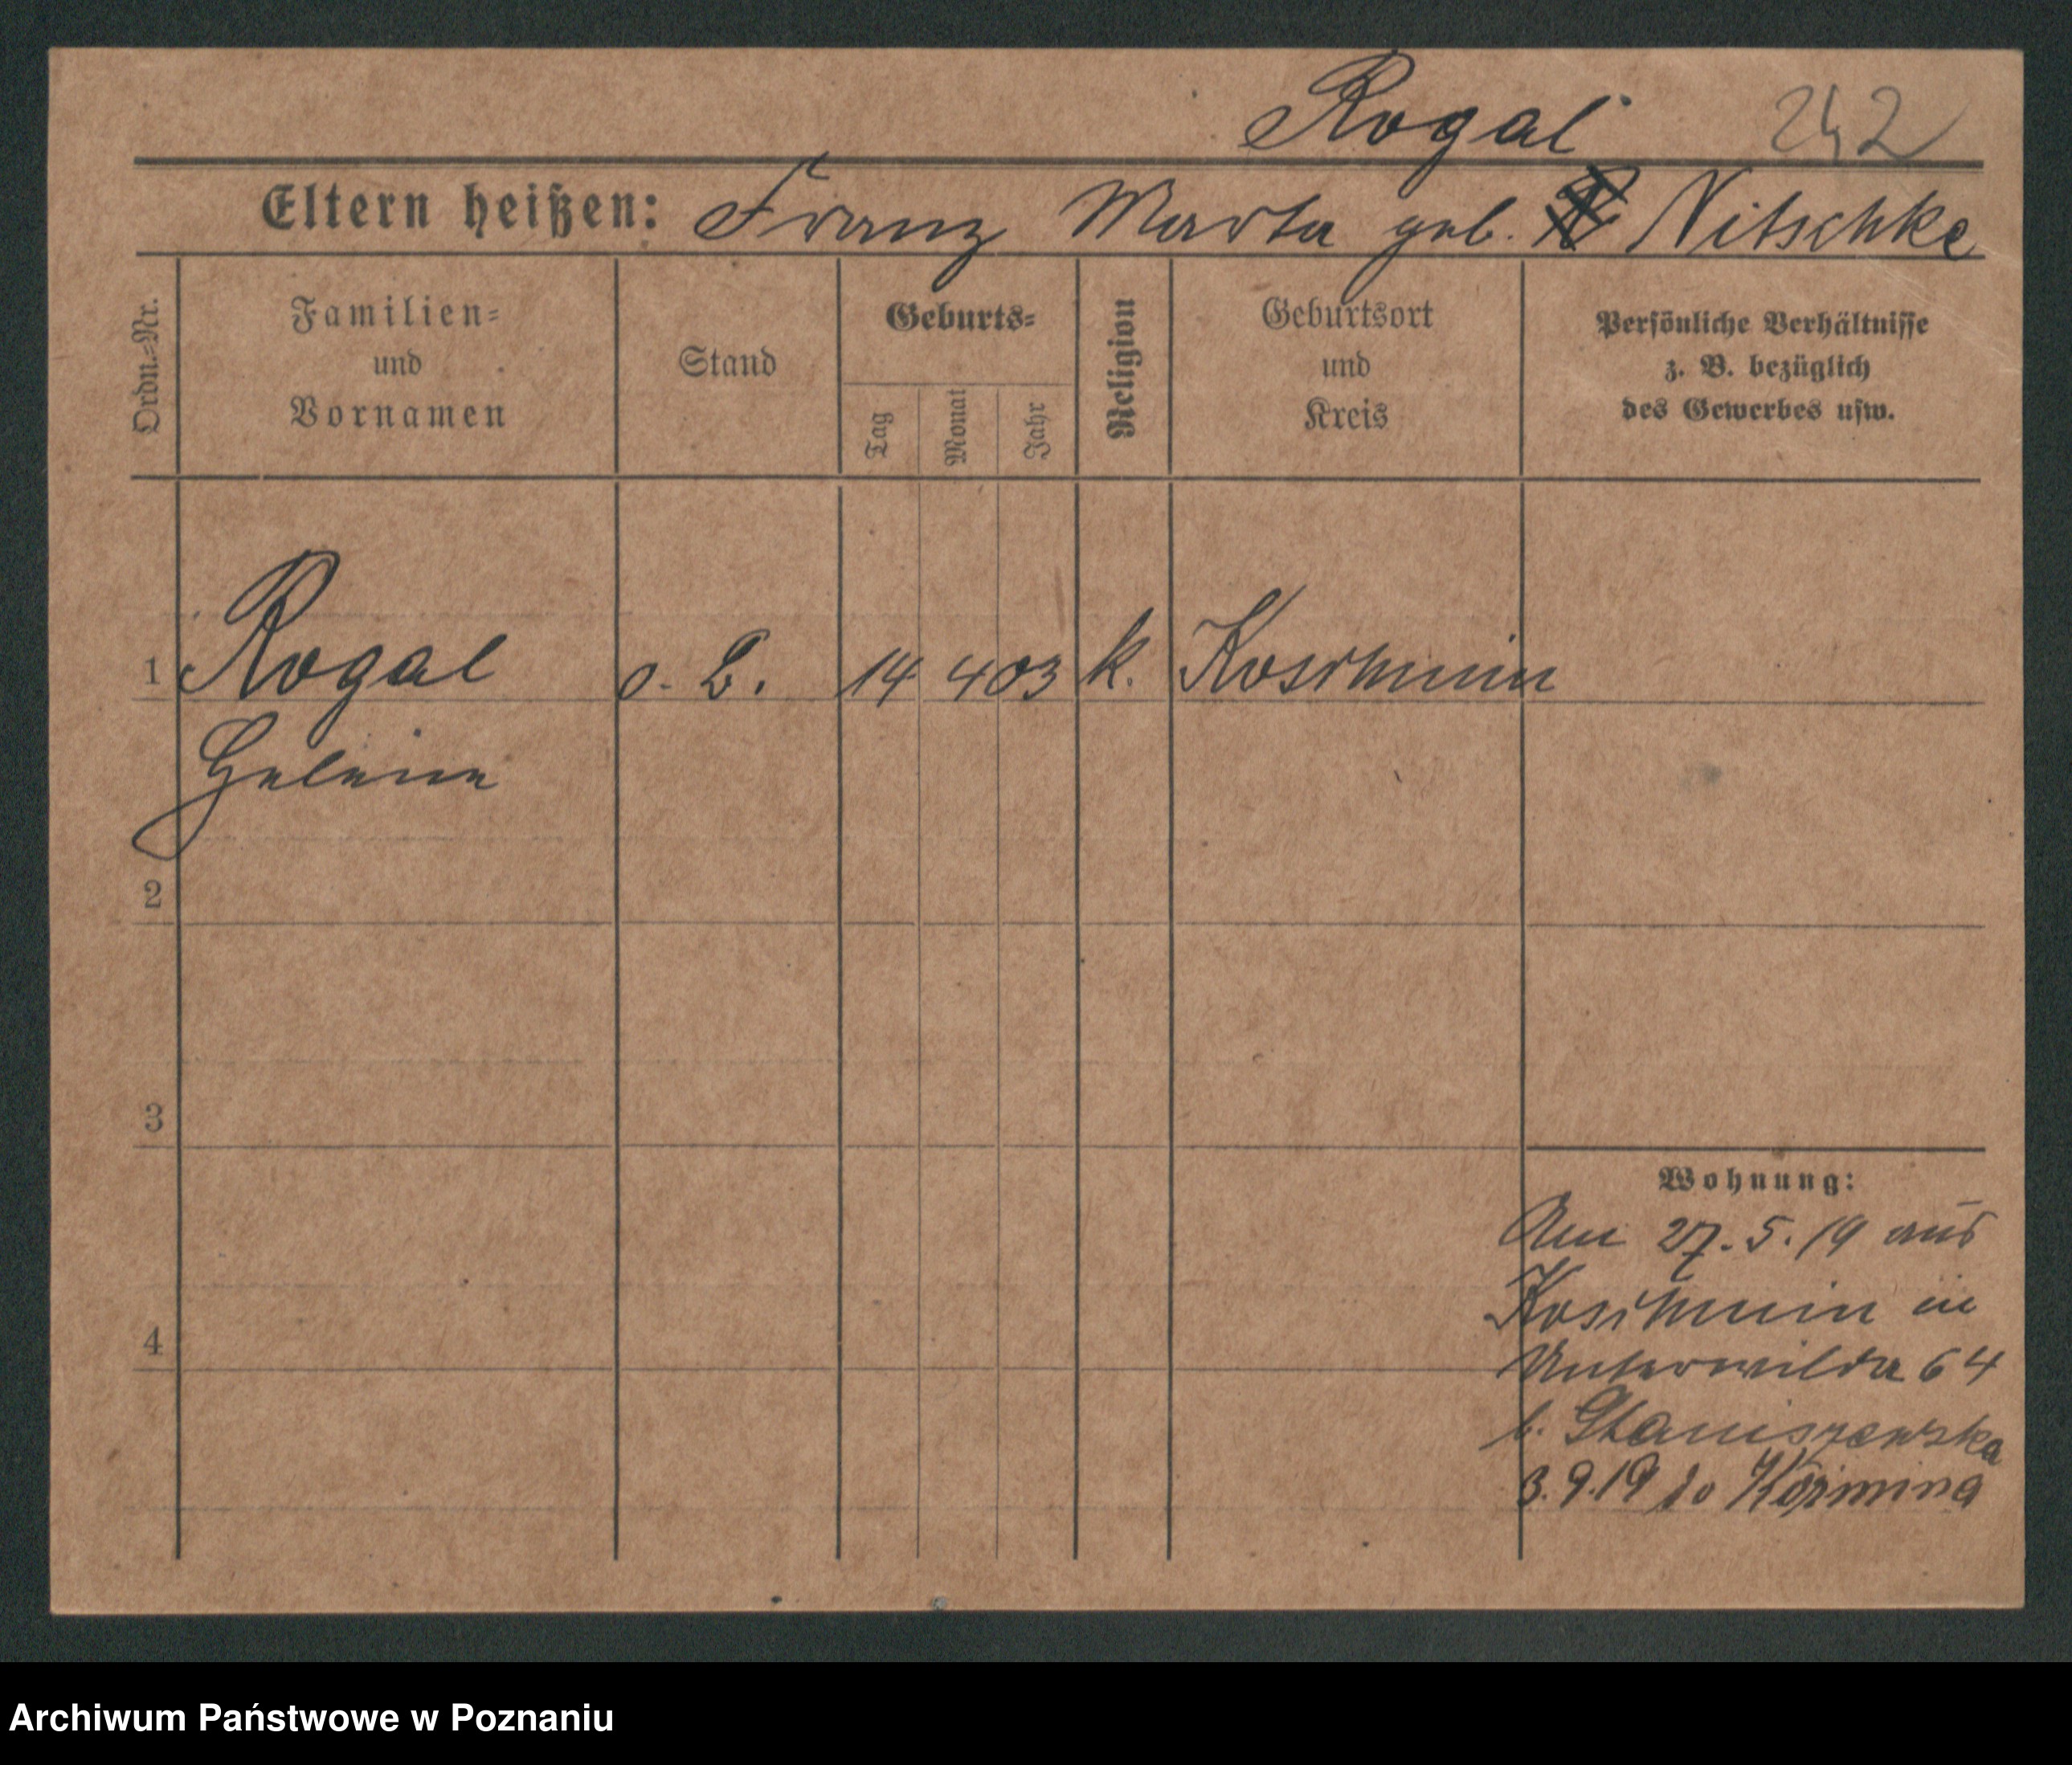 Rogal 242
Eltern heißen: Franz Marta geb. Nitschke
Ordn.-Nr.
Familien-
und
Vornamen
Stand
Geburts-
Tag
Monat
Jahr
Religion
Geburtsort
und
Kreis
Persönliche Verhältnisse
z. B. bezüglich
des Gewerbes usw.
1 Rogal o. B. 14 4 03 k. Koschmin
2
3
4
Wohnung:
Am 27.5.19 aus
Koschmin in
Unterwilda 64
b. Staniszewska
3.9.19 do Koźmina
Archiwum Państwowe w Poznaniu